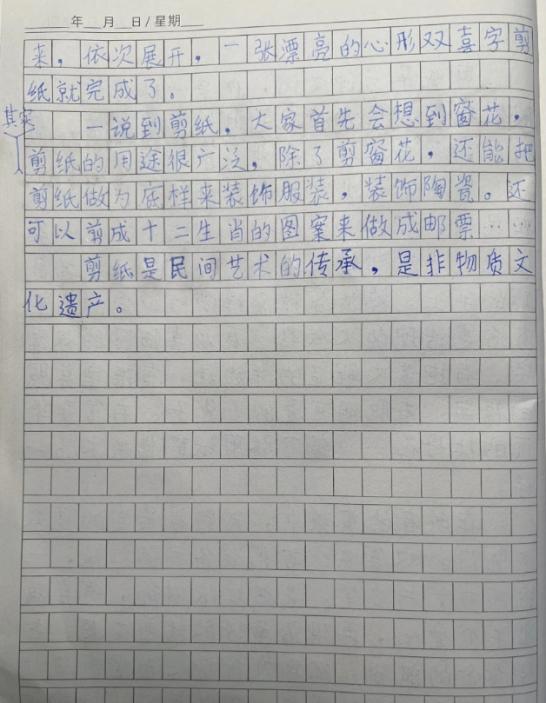 年 月 日/星期
来，依次展开，一张漂亮的心形双喜字剪
纸就完成了。
一说到剪纸，大家首先会想到窗花，
其实
剪纸的用途很广泛，除了剪窗花，还能把
剪纸做为底样来装饰服装，装饰陶瓷。还
可以剪成十二生肖的图案来做成邮票……
剪纸是民间艺术的传承，是非物质文
化遗产。